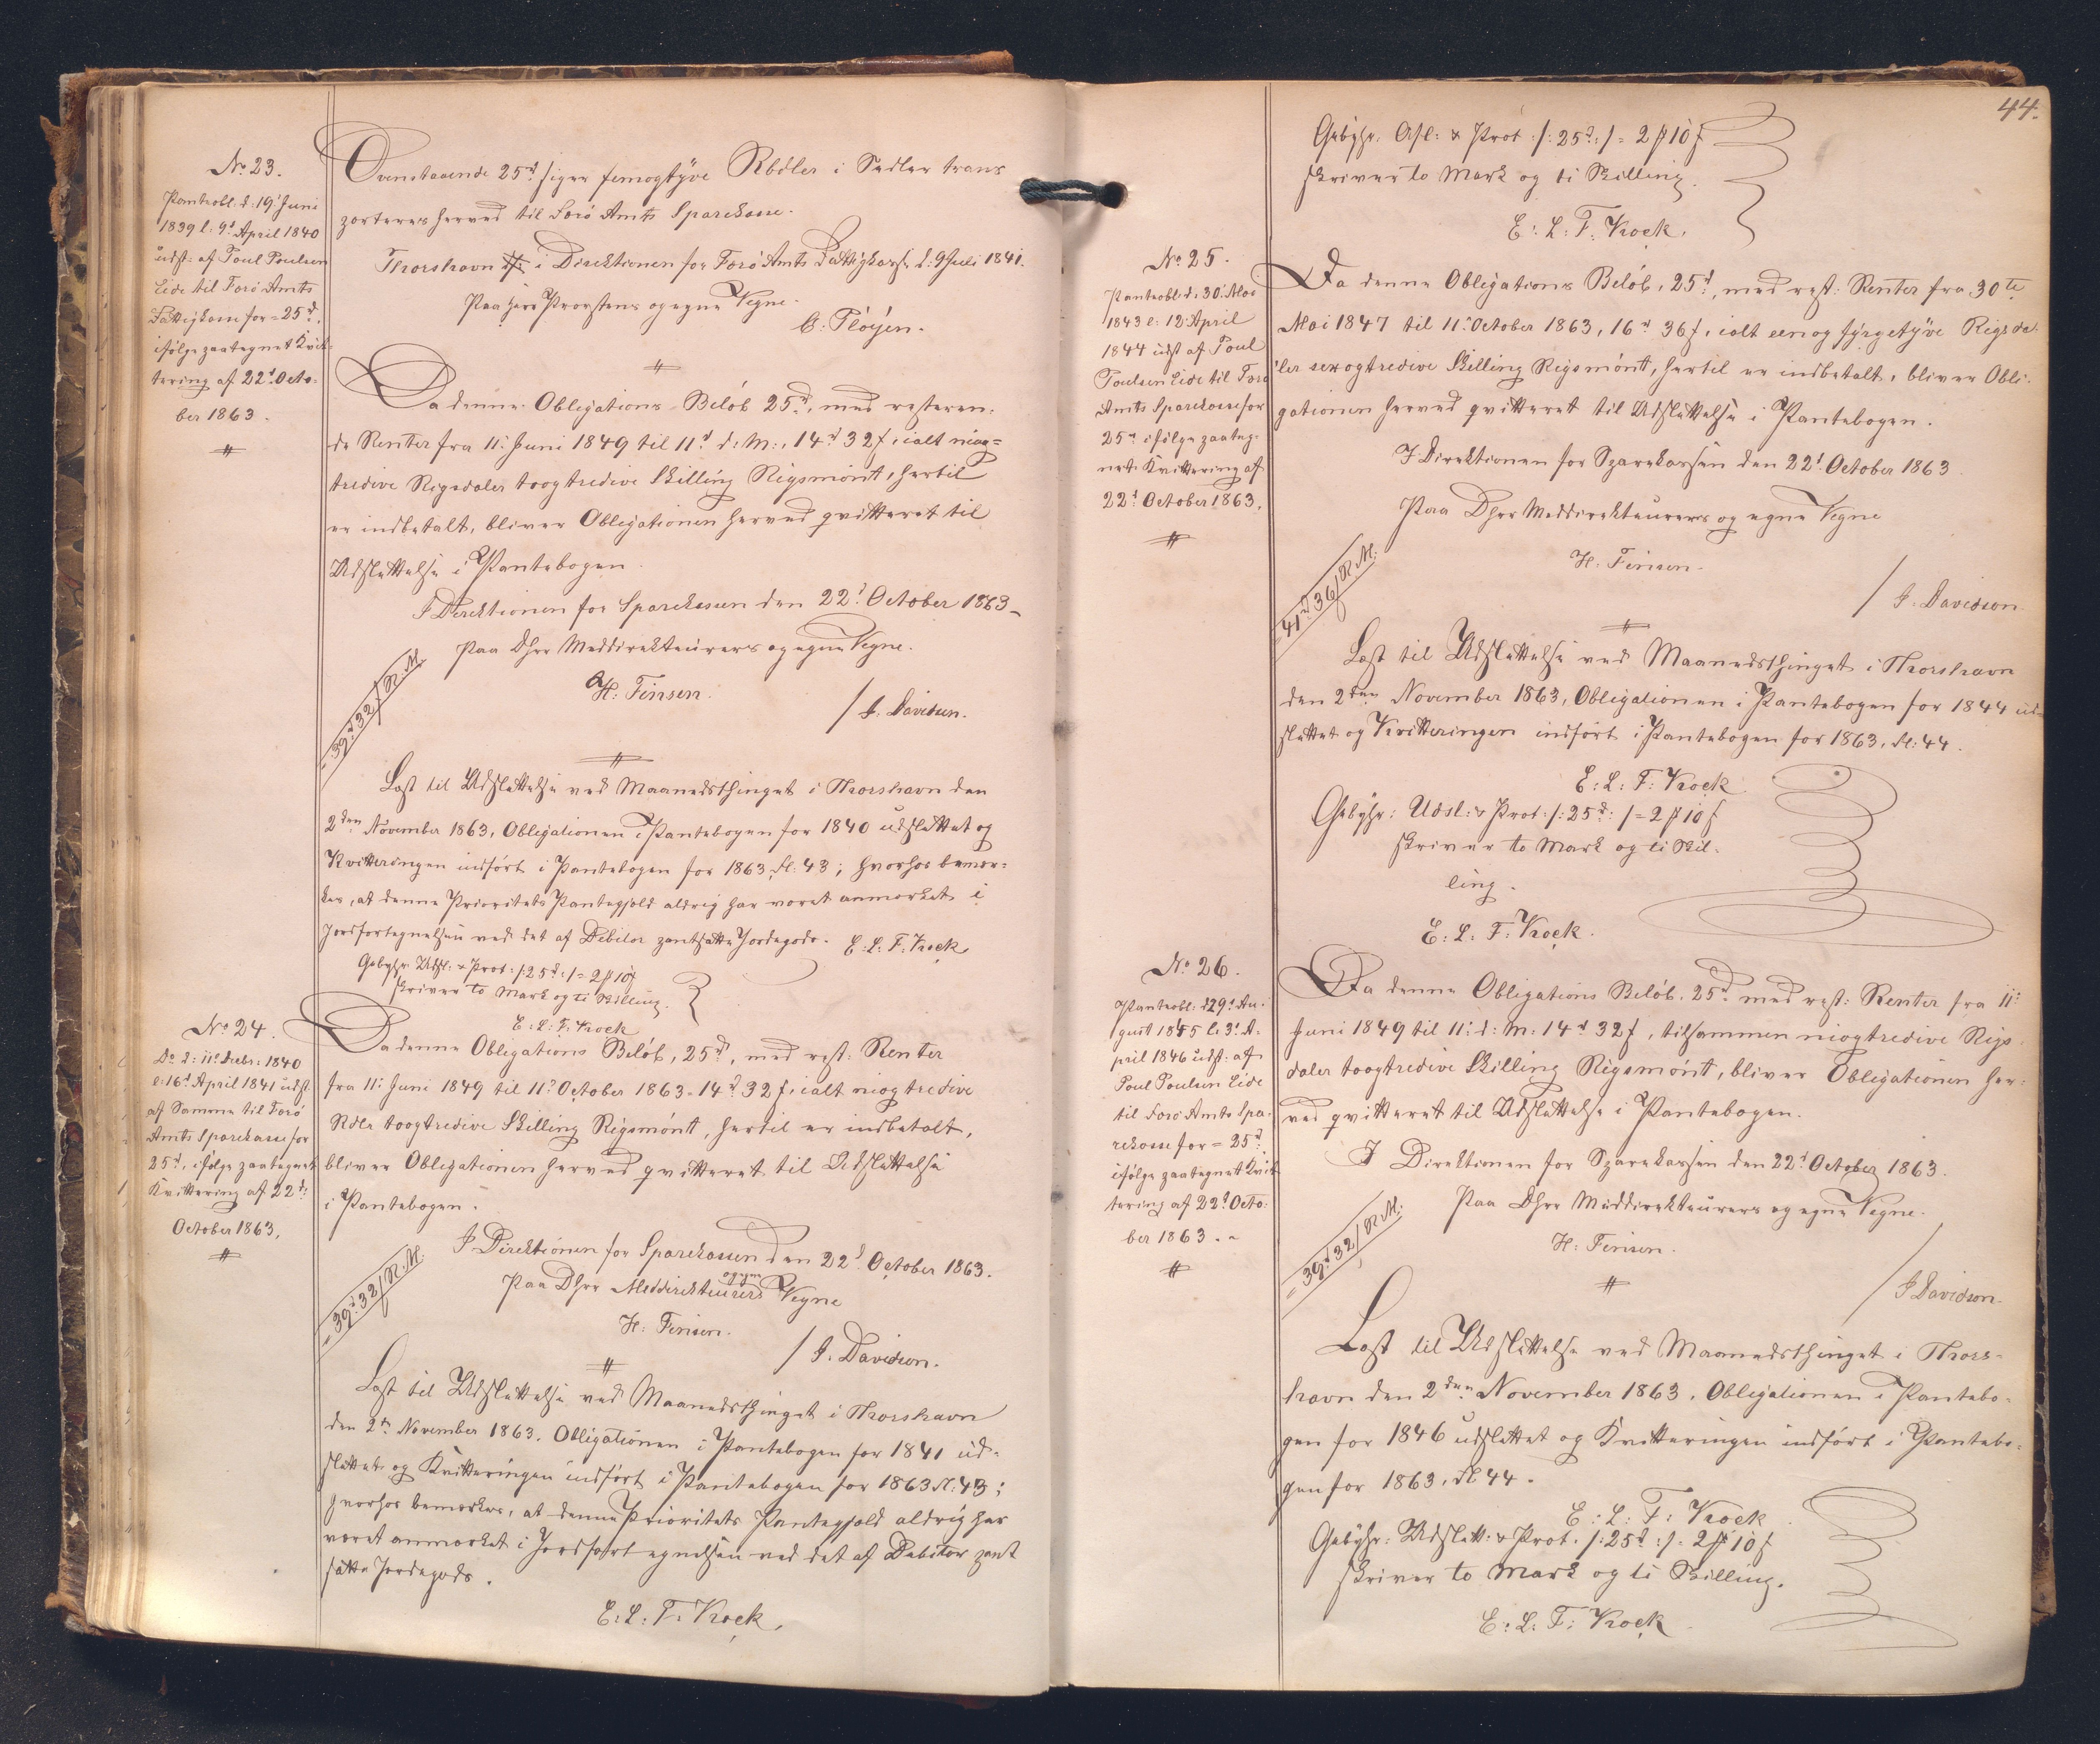 No 23.
Pantobl: d: 19' Juni
1839 l. 9d April 1840
udst: af Poul Poulsen
Eide til Færø Amts
Fattigkasse for = 25d.
ifølge paategnet Kvit-
tering af 22d Octo-
ber 1863.
#
Ovenstaaende 25d siger femogtyve Rbdler i Sedler trans
porteres herved til Færø Amts Sparekasse.
Thorshavn i Direktionen for Færø Amts Fattigkasse d: 9 Juli 1841.
Paa Herr Provstens og egne Vegne.
C: Pløyen.
#
Da denne Obligations-Beløb 25d, med resteren-
de Renter fra 11: Juni 1849 til 11d d: M:, 14d 32f, ialt niog-
tredive Rigsdaler toogtredive Skilling Rigsmönt, hertil
er indbetalt, bliver Obligationen herved qvitteret til
Udslettelse i Pantebogen.
I Direktionen for Sparekassen den 22d October 1863.
Paa DHrr Meddirekteurers og egne Vegne.
H: Finsen.
/ J. Davidsen.
= 39d 32f R.M.
#
Læst til Udslettelse ved Maanedsthinget i Thorshavn den
2den November 1863, Obligationen i Pantebogen for 1840 udslettet og
Kvitteringen indført i Pantebogen for 1863, fl: 43; hvorhos bemær-
kes, at denne Prioritets Pantegjæld aldrig har været anmærket i
Jordfortegnelsen ved det af Debitor pantsatte Jordegods. E: L: F: Krock
Gebyhr: Udsl: & Prot: /: 25d :/ = 2 ℔ 10f
skriver to Mark og ti Skilling.
E: L: F: Krock
No 24.
Do d: 11' Decbr: 1840
l: 16d April 1841 udst
af Samme til Færø
Amts Sparekasse for
25d, ifølge paategnet
Kvittering af 22d:
October 1863.
#
Da denne Obligations Beløb, 25d, med rest: Renter
fra 11: Juni 1849 til 11: October 1863 = 14d 32f, ialt niogtredive
Rdlr toogtredive Skilling Rigsmönt, hertil er indbetalt,
bliver Obligationen herved qvitteret til Udslettelse
i Pantebogen.
I Direktionen for Sparekassen den 22d October 1863.
Paa DHrr Meddirekteurers og egne Vegne
H: Finsen.
/ J. Davidsen.
= 39d 32f R.M.
#
Læst til Udslettelse ved Maanedsthinget i Thorshavn
den 2den November 1863. Obligationen i Pantebogen for 1841 ud-
slettet og Kvitteringen indført i Pantebogen for 1863 fl: 43;
hvorhos bemærkes, at denne Prioritets Pantegjæld aldrig har
været anmærket i Jordfortegnelsen ved det af Debitor pant
satte Jordegods.
E: L: F: Krock.
44.
Gebyhr: Afl: & Prot: /: 25d :/ = 2 ℔ 10f
skriver to Mark og ti Skilling.
E: L: F: Krock.
No 25.
Pantobl: d: 30' Mai
1843 l: 12' April
1844 udst af Poul
Poulsen Eide til Færø
Amts Sparekasse for
25d ifølge paateg-
net Kvittering af
22d October 1863.
#
Da denne Obligations Beløb, 25d, med rest: Renter fra 30te
Mai 1847 til 11: October 1863, 16d 36f, ialt eenogfyrgetyve Rigsda-
ler sexogtredive Skilling Rigsmönt, hertil er indbetalt, bliver Obli-
gationen herved qvitteret til Udslettelse i Pantebogen.
I Direktionen for Sparekassen den 22d October 1863.
Paa DHrr Meddirekteurers og egne Vegne
H: Finsen.
/ J. Davidsen
= 41d 36f R.M.
#
Læst til Udslettelse ved Maanedsthinget i Thorshavn
den 2den November 1863, Obligationen i Pantebogen for 1844 ud-
slettet og Kvitteringen indført i Pantebogen for 1863, fl: 44.
E: L: F: Krock
Gebyhr: Udsl: & Prot: /: 25d: / = 2 ℔ 10f
skriver to Mark og ti Skil-
ling.
E: L: F: Krock.
No 26.
Pantobl: d 29d Au-
gust 1845 l: 3d A-
pril 1846 udst: af
Poul Poulsen Eide
til Færø Amts Spa-
rekasse for = 25d
ifølge paategnet Kvit-
tering af 22d Octo-
ber 1863.
#
Da denne Obligations Beløb, 25d med rest: Renter fra 11:
Juni 1849 til 11: d: M: 14d 32f, tilsammen niogtredive Rigs-
daler toogtredive Skilling Rigsmönt, bliver Obligationen her-
ved qvitteret til Udslettelse i Pantebogen.
I Direktionen for Sparekassen den 22d October 1863.
Paa DHrr Meddirekteurers og egne Vegne.
H: Finsen.
/ J Davidsen.
= 39d 32f R.M.
#
Læst til Udslettelse ved Maanedsthinget i Thors-
havn den 2den November 1863. Obligationen i Pantebo-
gen for 1846 udslettet og Kvitteringen indført i Pantebo-
gen for 1863, fl 44.
E: L: F: Krock
Gebyhr: Udslett: & Prot: /: 25d :/ = 2 ℔ 10f
skriver to Mark og ti Skilling.
E: L: F: Krock